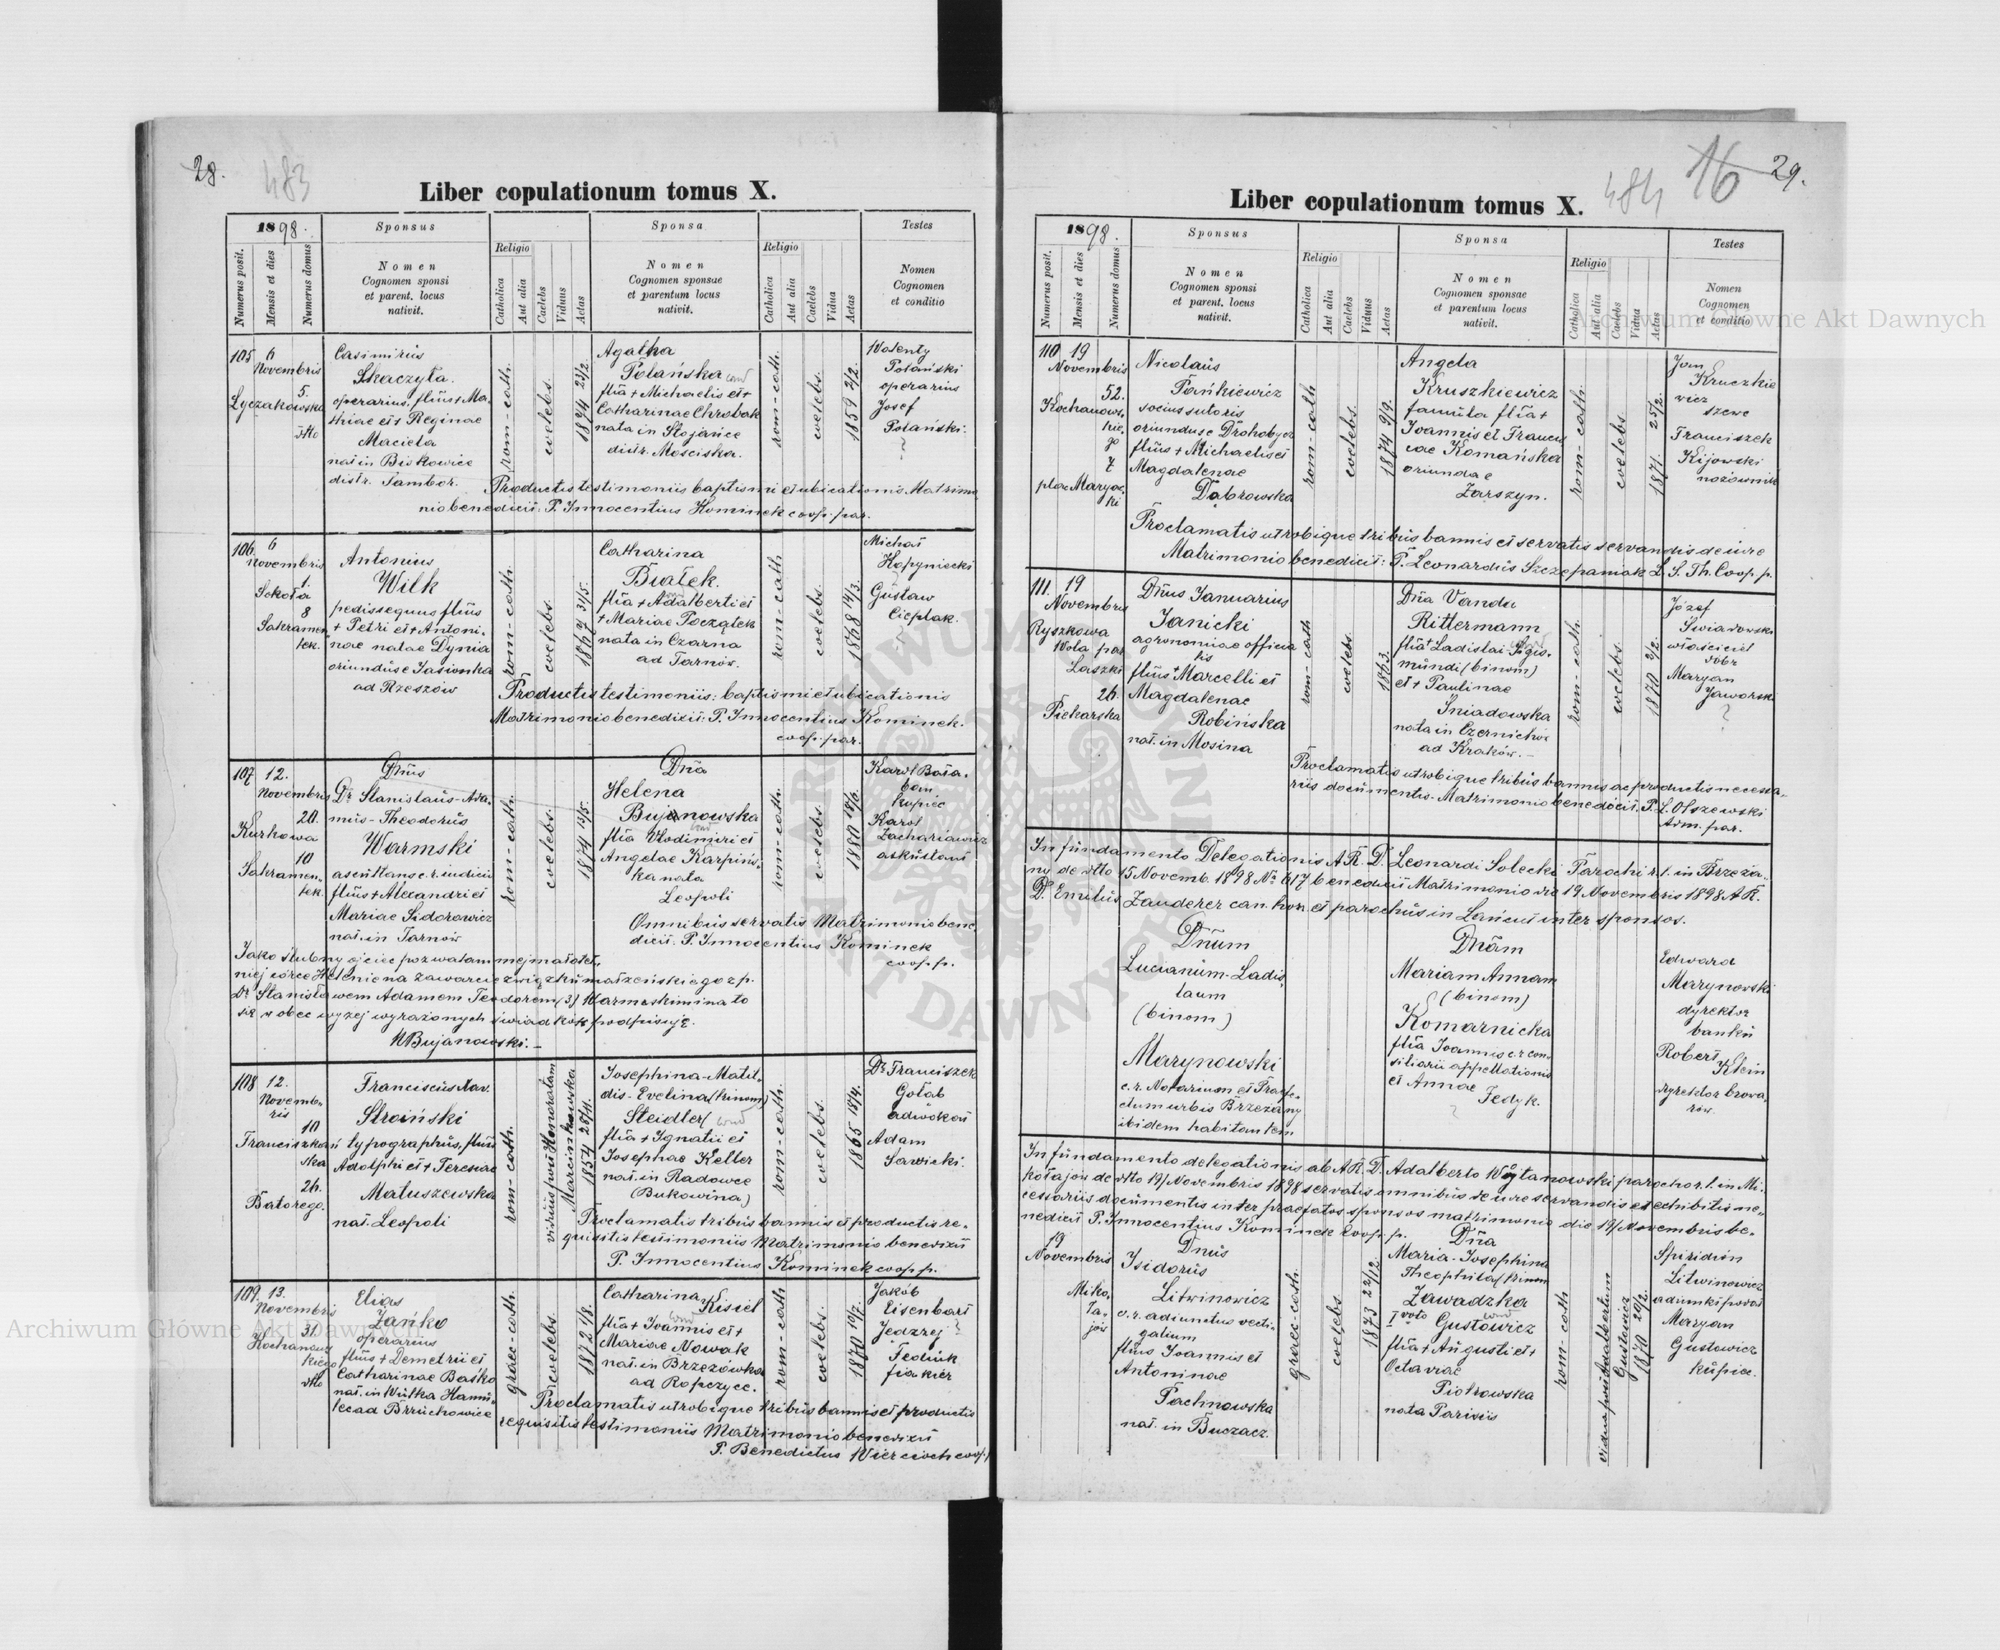 28.
483
Liber copulationum tomus X.
1898.
Sponsus
Sponsa
Testes
Numerus posit.
Mensis et dies
Numerus domus
Nomen
Cognomen sponsi
et parent. locus
nativit.
Religio
Catholica
Aut alia
Caelebs
Viduus
Aetas
Nomen
Cognomen sponsae
et parentum locus
nativit.
Religio
Catholica
Aut alia
Caelebs
Vidua
Aetas
Nomen
Cognomen
et conditio
105
6
Novembris
5.
Łyczakowska
dtto
Casimirus
Skaczyła.
operarius, flius + Ma-
thiae et + Reginae
Macieła
nat in Biskowice
distr. Sambor.
rom-cath.
coelebs.
1874 23/2.
Agatha
Polańska
flia + Michaelis et +
Catharinae Chrobak
nata in Stojańce
distr. Mościska.
rom-cath.
coelebs.
1859 2/2.
Walenty
Polański
operarius
Josef
Polański.
Productis testimoniis baptismi et ubicationis Matrimo
nio benedicit: P. Innocentius Kominek coop. par.
106.
6
Novembris
1.
Sokoła
8
Sakramen-
tek.
Antonius
Wilk
pedissequus flius
+ Petri et + Antoni-
nae natae Dynia
oriundus e Jasionka
ad Rzeszów
rom-cath.
coelebs.
1867 31/5.
Catharina
Białek.
flia + Adalberti et
+ Mariae Początek
nata in Czarna
ad Tarnów.
rom-cath
coelebs.
1868 14/3.
Michał
Kopyniecki
Gustaw
Cieplak.
Productis testimoniis: baptismi et ubicationis
Matrimonio benedicit: P. Innocentius Kominek.
coop. par.
107
12.
Novembris
20.
Kurkowa
10
Sakramen-
tek.
Dnus
Dr Stanislaus-Ada-
mus-Theodorus
Warmski
ascultans c. r. iudicii
flius + Alexandri et
Mariae Sidorowicz
nat. in Tarnów
rom-cath.
coelebs.
1871 13/5.
Dna
Helena
Bujanowska
flia Vlodimiri et
Angelae Karpińs-
ka nata
Leopoli
rom-cath.
coelebs.
Karol Bała-
ban
kupiec
Karol
Zachariawicz
Omnibus servatis Matrimonio bene-
dicit. P. Innocentius Kominek
coop. p.
Jako ślubny ojciec pozwalam mej małolet-
niej córce Helenie na zawarcie związku małżeńskiego z p.
Dr Stanisławem Adamem Teodorem (3) Warmskim i na to
się w obec wyżej wyrażonych świadków podpisuję.
WBujanowski. —
108
12.
Novemb-
ris
10
Franciszkań
ska
26.
Batorego.
Franciscus Xav.
Stroiński
typographus, flius
Adolphi et + Teresiae
Matuszewska
nat. Leopoli
rom-cath.
viduus post Honoratam
Marcinkowska
1857 28/11.
Josephina-Matil-
dis-Evelina (trinom)
Steidler
flia + Ignatii et
Josephae Keller
nat. in Radowce
(Bukowina)
rom-cath.
coelebs.
1865 15/4.
Dr Franciszek
Gołąb
adwokat
Adam
Sawicki.
Proclamatis tribus bannis et productis re-
quisitis testimoniis Matrimonio benedixit
P. Innocentius Kominek coop. p.
109.
13.
Novembris
31.
Kochanow
kiego
dtto
Elias
Zańko
operarius
flius + Demetrii et
Catharinae Baśko
nat. in Wulka Hamu-
lec ad Brzuchowice
graec-cath.
coelebs.
1872 1/8.
Catharina
Kisiel
flia + Ioannis et +
Mariae Nowak
nat. in Brzezówka
ad Ropczyce.
rom-cath
coelebs.
1870 10/7.
Jakób
Eisenbart
Jędrzej
Fediuk
fiakier
Proclamatis utrobique tribus bannis et productis
requisitis testimoniis Matrimonio benedixit
P. Benedictus Wiercioch coop.
16
29.
484
Liber copulationum tomus X.
1898.
Sponsus
Sponsa
Testes
Numerus posit.
Mensis et dies
Numerus domus
Nomen
Cognomen sponsi
et parent. locus
nativit.
Religio
Catholica
Aut alia
Caelebs
Viduus
Aetas
Nomen
Cognomen sponsae
et parentum locus
nativit.
Religio
Catholica
Aut alia
Caelebs
Vidua
Aetas
Nomen
Cognomen
et conditio
110
19
Novembris
52.
Kochanows-
kie-
go
7
plac Maryac-
ki
Nicolaus
Pańkiewicz
socius sutoris
oriundus e Drohobycz
flius + Michaelis et
Magdalenae
Dąbrowska
rom-cath
coelebs.
1874 9/9.
Angela
Kruszkiewicz
famula flia +
Joannis et Francis
cae Komańska
oriunda e
Zarszyn.
rom-cath.
coelebs.
1871. 25/2.
Jan
Kruczkie
wicz
szewc
Franciszek
Kijowski
nożownik
Proclamatis utrobique tribus bannis et servatis servandis de iure
Matrimonio benedicit: P. Leonardus Szczepaniak L. S. Th. Coop. p.
111.
19
Novembris
Ryszkowa
Wola pod
Laszki
26.
Piekarska
Dnus Januarius
Janicki
agronomiae officia
lis
flius + Marcelli et
Magdalenae
Robińska
nat. in Mosina
rom-cath
coelebs.
1863.
Dna Vanda
Rittermann
flia Ladislai-Sigis-
mundi (binom)
et + Paulinae
Śniadowska
nata in Czernichów
ad Kraków. —
rom-cath.
coelebs.
1870 2/2.
Józef
Świadowski
właściciel
dóbr
Maryan
Jaworski
?
Proclamatis utrobique tribus bannis ac productis necessa-
riis documentis. Matrimonio benedicit. P. L. Olszewski
Adm. par.
In fundamento Delegationis A. R. D. Leonardi Solecki Parochi r. l. in Brzeża-
ny de dtto 15 Novemb. 1898 No 617 benedicit Matrimonio die 19 Novembris 1898 A. R.
D. Emilius Zauderer can. hon. et parochus in Łańcut inter sponsos.
Dnum
Lucianum-Ladis-
laum
(binom)
Marynowski
c. r. Notarium et Praefe-
ctum urbis Brzeżany
ibidem habitantem
Dnam
Mariam Annam
(binom)
Komarnicka
flia Joannis c. r. con-
siliarii appellationis
et Annae
Fedyk.
?
Edward
Marynowski
dyrektor
banku
Robert
Klein
dyrektor browa-
rów.
In fundamento delegationis ab A. R. D. Adalberto Wojtanowski parocho r. l. in Mi-
kołajów de dtto 19/Novembris 1898 servatis omnibus de iure servandis et exhibitis ne-
cessariis documentis inter praefatos sponsos matrimonio die 19/Novembris be-
nedicit P. Innocentius Kominek Coop. p.
19
Novembris
Miko-
ła-
jów
Dnus
Isidorus
Litwinowicz
c. r. adiunctus vecti-
galium
flius Joannis et
Antoninae
Pachnowska
nat. in Buczacz.
graec-cath.
coelebs
1873 22/12
Dna
Maria-Josephina
Theophila (trinom
Zawadzka
I voto Gustowicz
flia + Augusti et +
Octaviae
Piotrowska
nata Parisiis
rom-cath
1870 20/2.
Spiridion
Litwinowicz
adiunkt podat
Maryan
Gustowicz
kupiec.
Archiwum Główne Akt Dawnych
Archiwum Główne Akt Dawnych